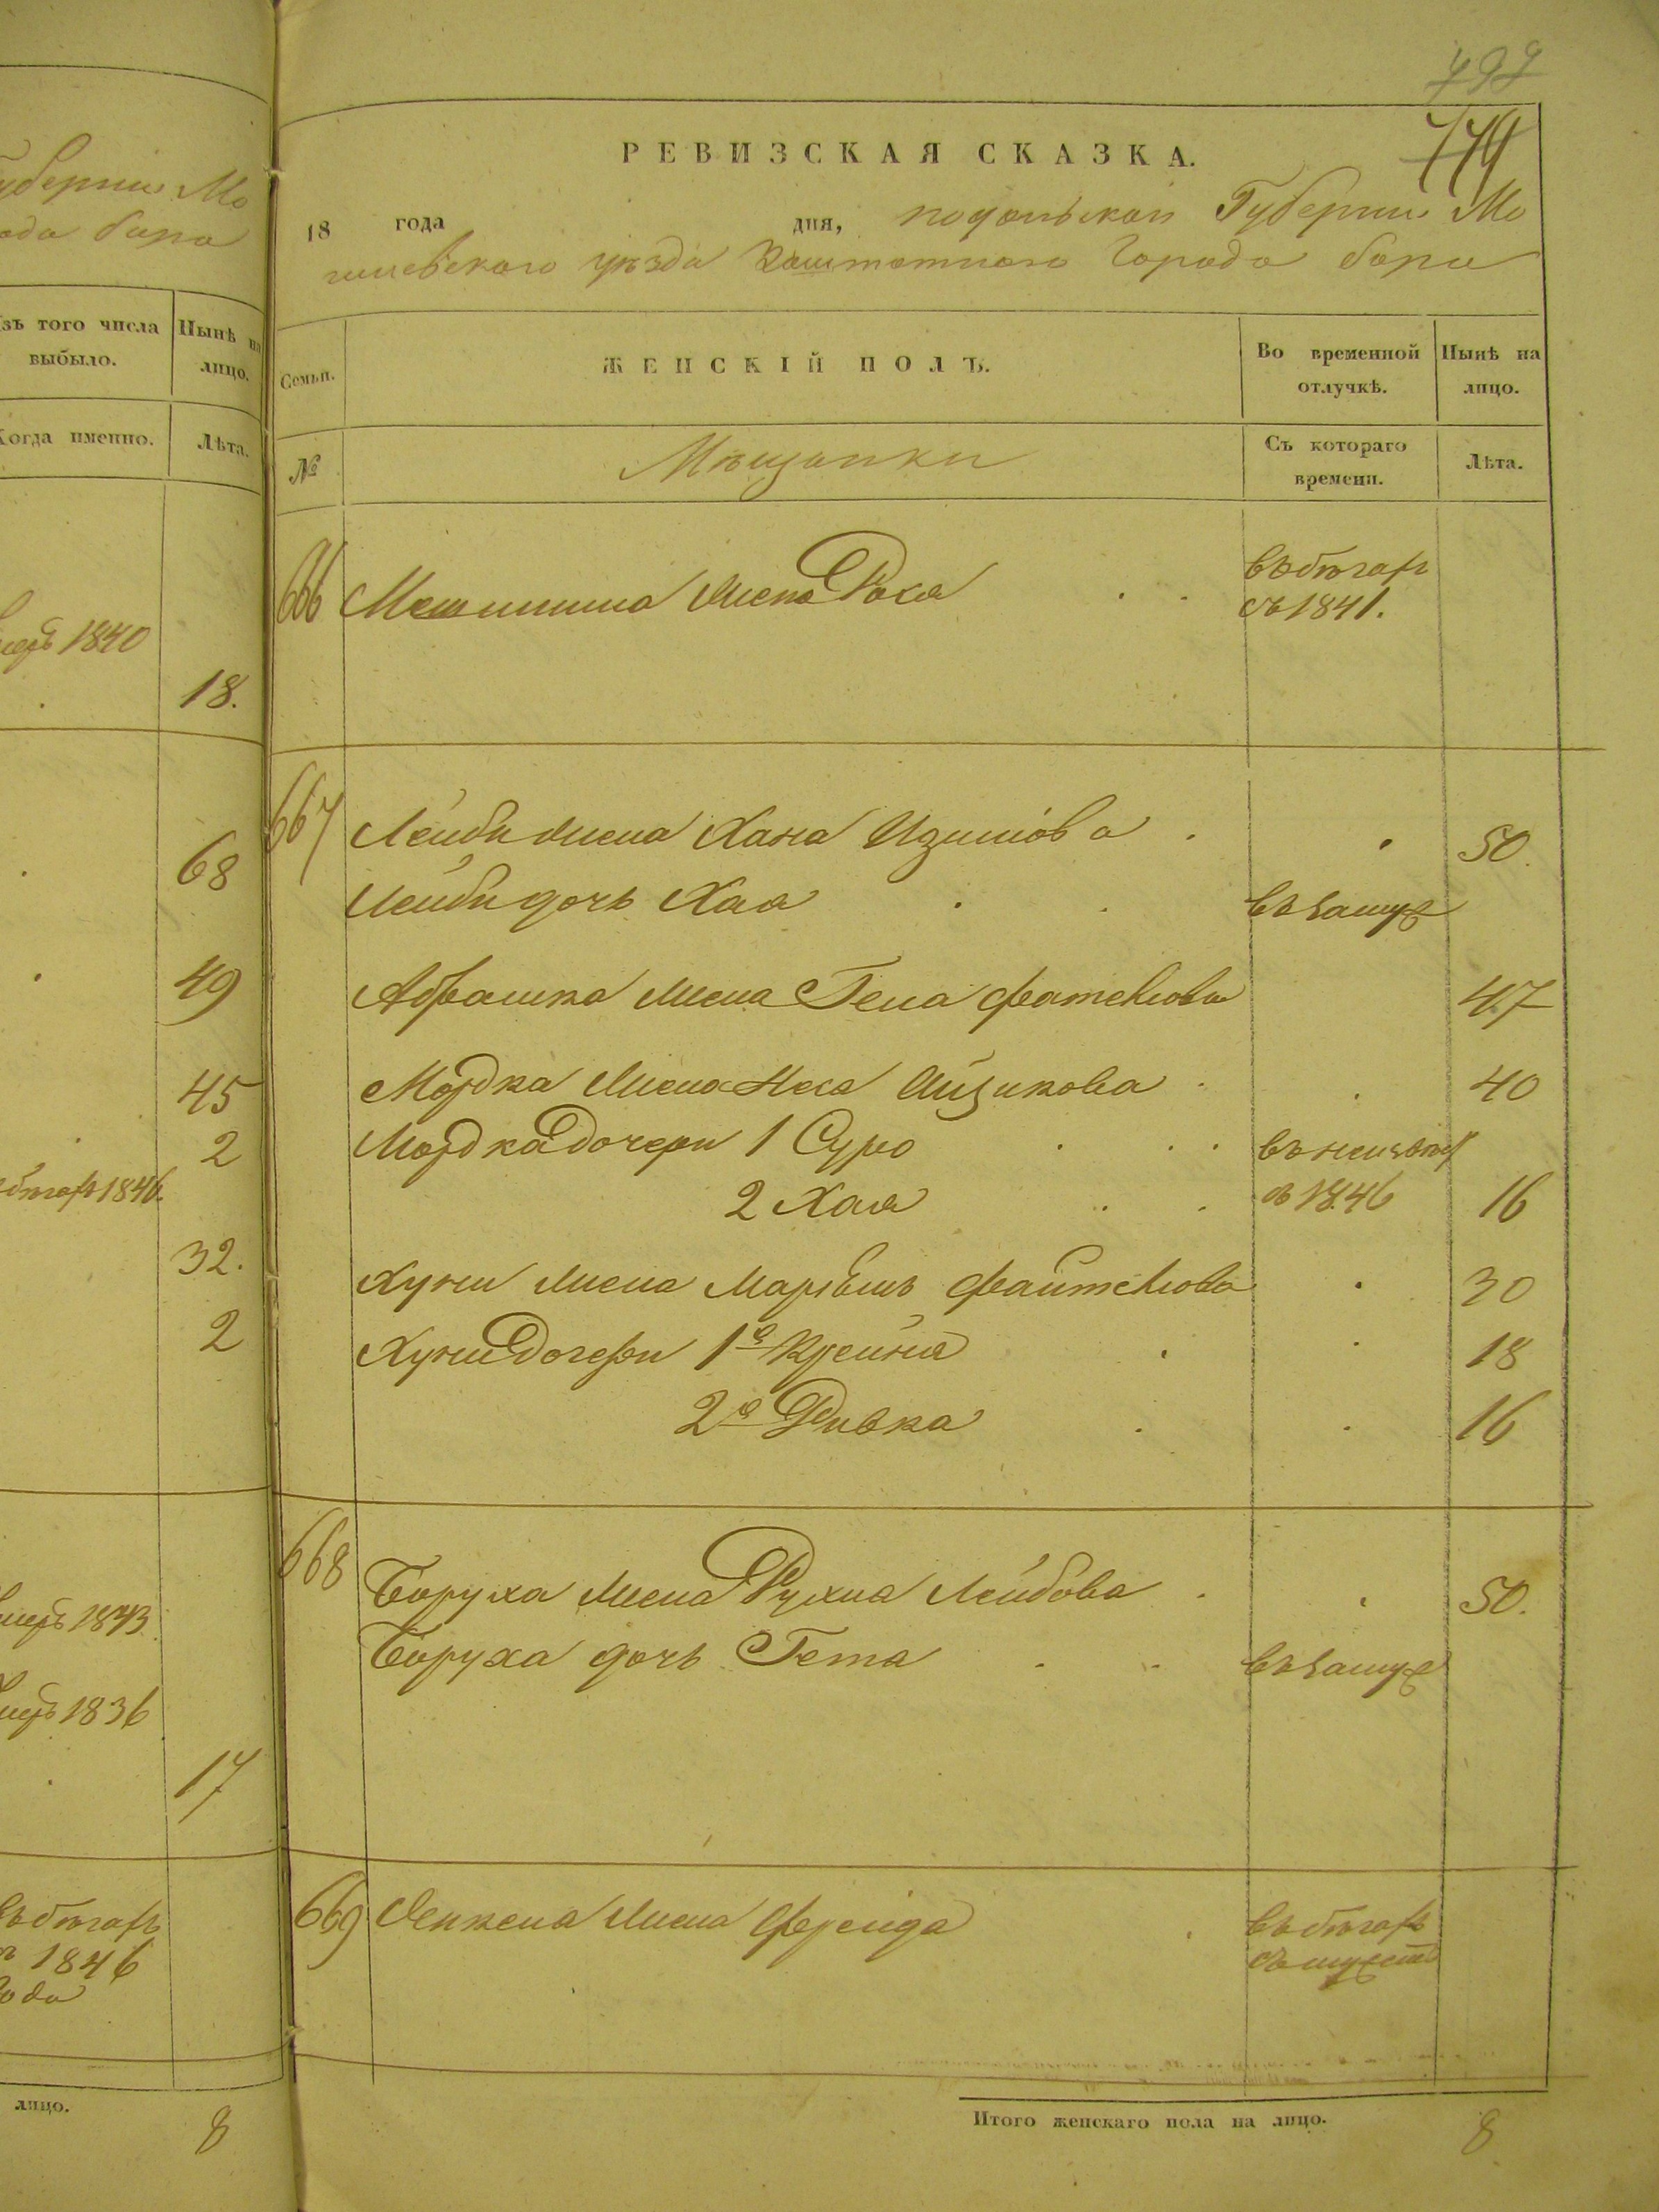 779
РЕВИЗСКАЯ СКАЗКА.
18 года дня, подольской Губернии Мо
гилевского уѣзда Заштатного Города бара
губернии Мо
ода бара
Изъ того числа выбыло.
Нынѣ на лицо.
Когда именно.
Лѣта.
1840
18.
68
49
45
2
1846.
32.
2
1843
1836
17
въ бѣгахъ
1846
года
лицо.
8
Семьи.
ЖЕНСКІЙ ПОЛЪ.
Во временной отлучкѣ.
Нынѣ на лицо.
№
Мѣщанки
Съ котораго времени.
Лѣта.
666 жена Рося въ бѣгах
съ 1841.
667 Лейби жена Хана 50.
Лейби дочь Хая въ замуж
Абрашка жена Гена 47
Мордка жена Неся Айзикова 40
Мордка дочери 1 Сура въ неизвѣст
2 Хая съ 1846 16
Хуни жена Марьемъ Файтелова 30
Хуни дочери 1я Крейна 18
2я Ривка 16
668 Боруха жена Рухла Лейбова 50.
Боруха дочь Гета въ замуж
669 жена Фрейда въ бѣгахъ
съ мужемъ
Итого женскаго пола на лицо. 8